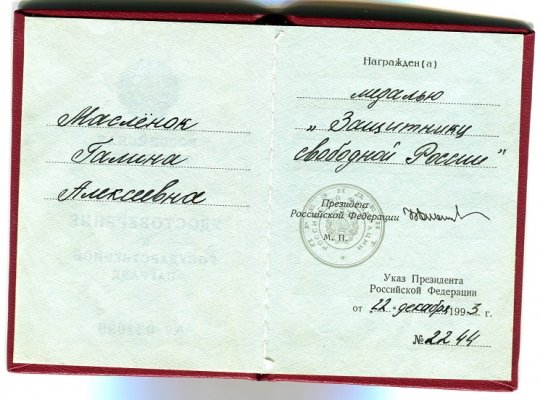 Масленок
Галина
Алексеевна
Награжден(а)
медалью
„Защитнику
свободной России"
Президент
Российской Федерации
М. П.
Указ Президента
Российской Федерации
от 22 декабря 1993 г.
№ 2244